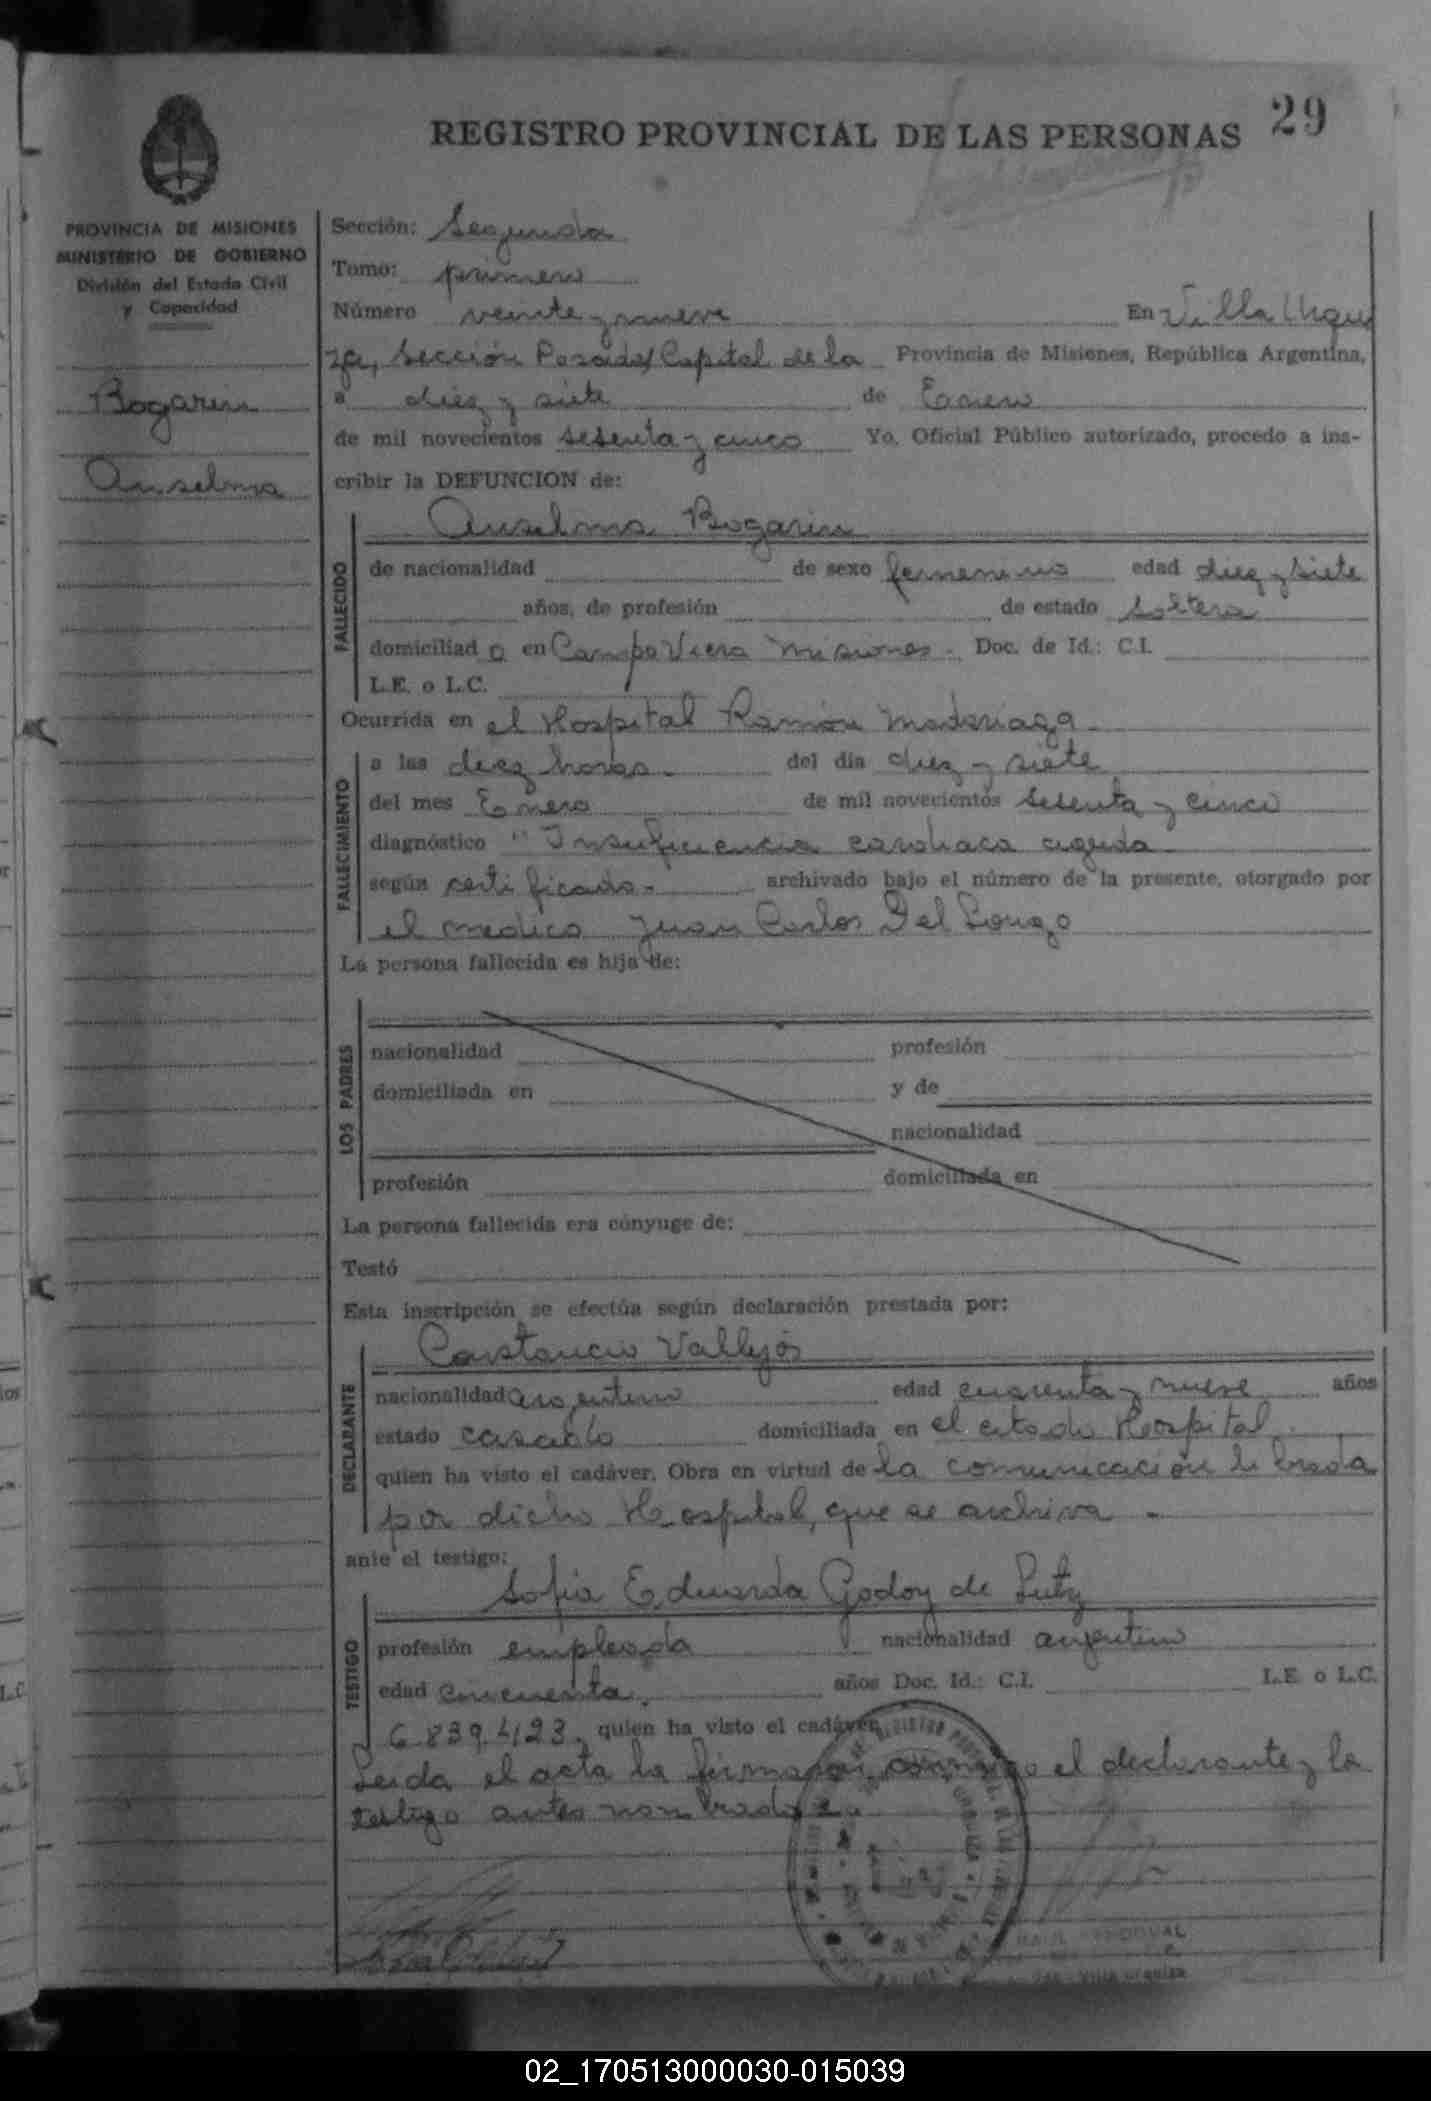 29
REGISTRO PROVINCIAL DE LAS PERSONAS
PROVINCIA DE MISIONES
MINISTERIO DE GOBIERNO
División del Estado Civil
y Capacidad
Bogarin
Anselma
Sección: Segunda
Tomo: primero
Número veinte y nueve En Villa Urqui
za, Sección Posadas Capital de la Provincia de Misiones, República Argentina,
a diez y siete de Enero
de mil novecientos setenta y cinco Yo, Oficial Público autorizado, procedo a ins-
cribir la DEFUNCION de:
Anselma Bogarin
FALLECIDO
de nacionalidad de sexo femenino edad diez y siete
años, de profesión de estado soltera
domiciliad a en Campo Viera Misiones. Doc. de Id.: C.I.
L.E. o L.C.
Ocurrida en el Hospital Ramón Madariaga
FALLECIMIENTO
a las diez horas. del día diez y siete
del mes Enero de mil novecientos setenta y cinco
diagnóstico "Insuficiencia cardiaca aguda
según certificado. archivado bajo el número de la presente, otorgado por
el medico Juan Carlos Del Longo
La persona fallecida es hija de:
LOS PADRES
nacionalidad profesión
domiciliada en y de
nacionalidad
profesión domiciliada en
La persona fallecida era cónyuge de:
Testó
Esta inscripción se efectúa según declaración prestada por:
Constancio Vallejos
DECLARANTE
nacionalidad argentino edad cuarenta y nueve años
estado casado domiciliada en el citado Hospital.
quien ha visto el cadáver. Obra en virtud de la comunicación librada
por dicho Hospital, que se archiva.
ante el testigo:
Sofia Eduarda Godoy de Lutz
TESTIGO
profesión empleada nacionalidad argentino
edad cincuenta. años Doc. Id.: C.I. L.E. o L.C.
6.839.423, quien ha visto el cadáver
Leida el acta la firman conmigo el declarante y la
testigo antes nombrados.
RAUL SANDOVAL
Villa Urquiza
02_170513000030-015039